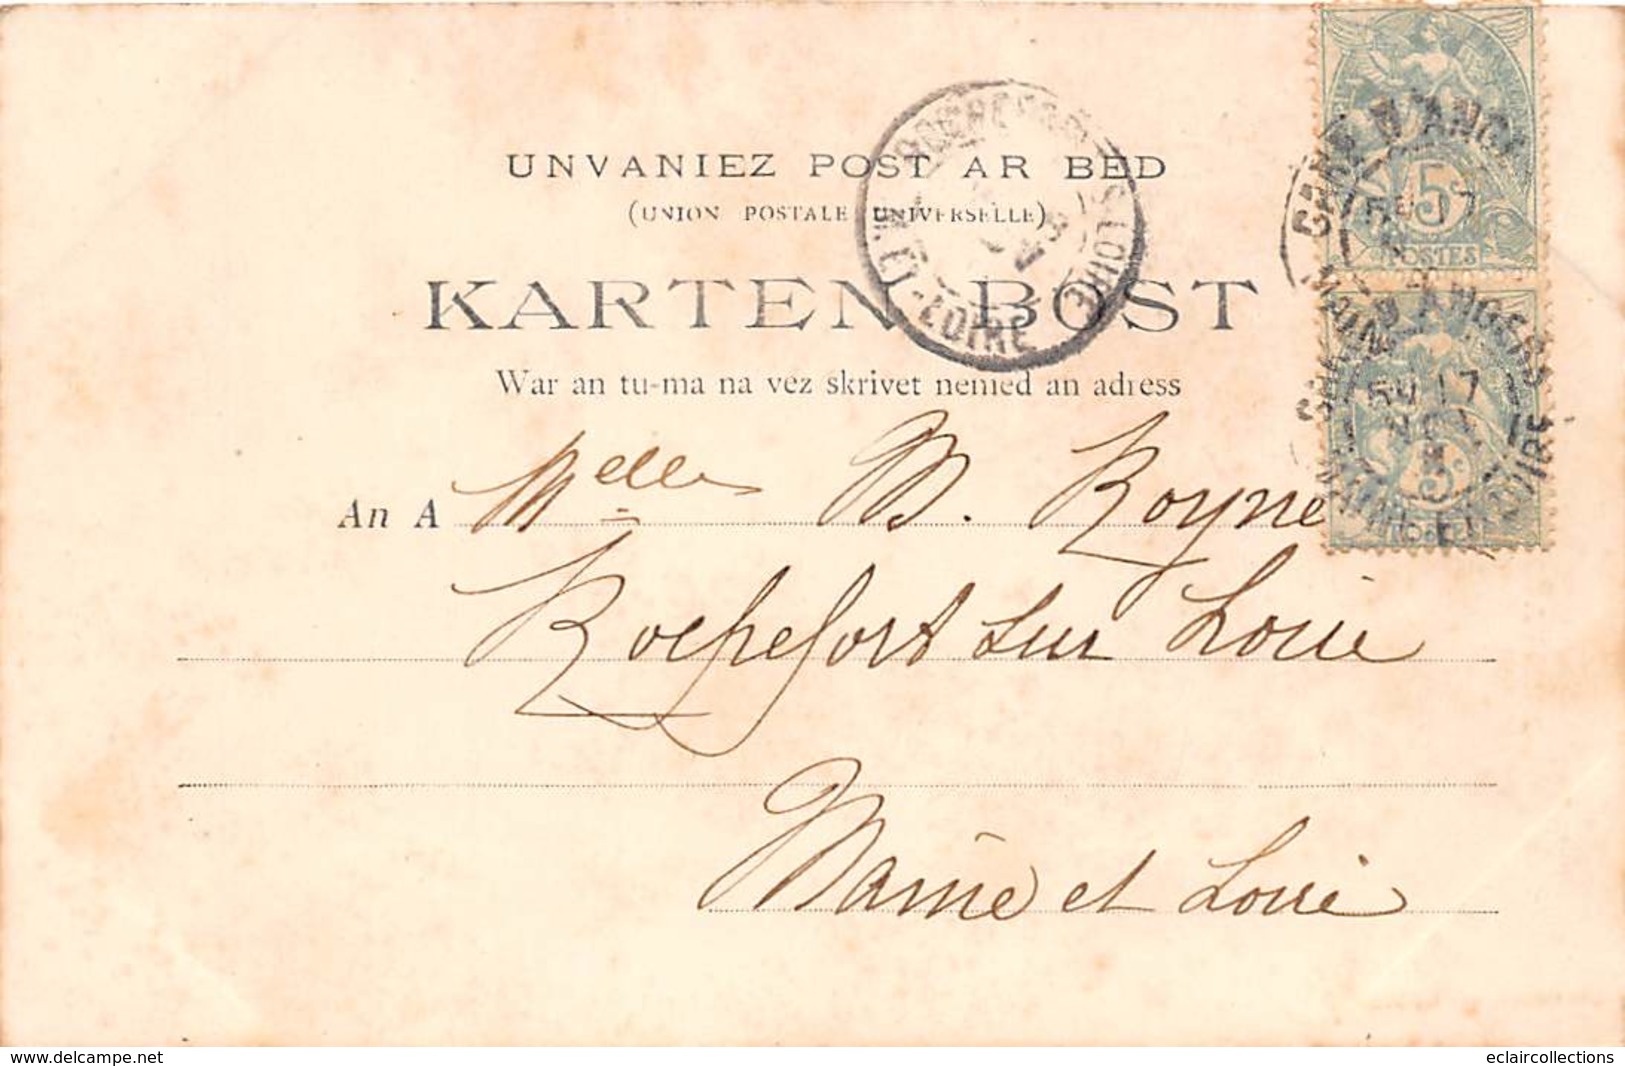 UNVANIEZ POST AR BED
(UNION POSTALE UNIVERSELLE)
KARTEN BOST
War an tu-ma na vez skrivet nemed an adress
An A Melle M. Royne
Rochefort sur Loire
Maine et Loire
ROCHEFORT S. LOIRE
M. ET-LOIRE
GARE D'ANGERS
MAINE ET LOIRE
17
5c
POSTES
www.delcampe.net
eclaircollections